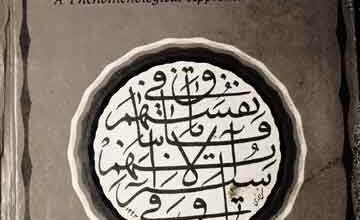 A Phenomenological
سنريهم آياتنا في الآفاق وفي أنفسهم